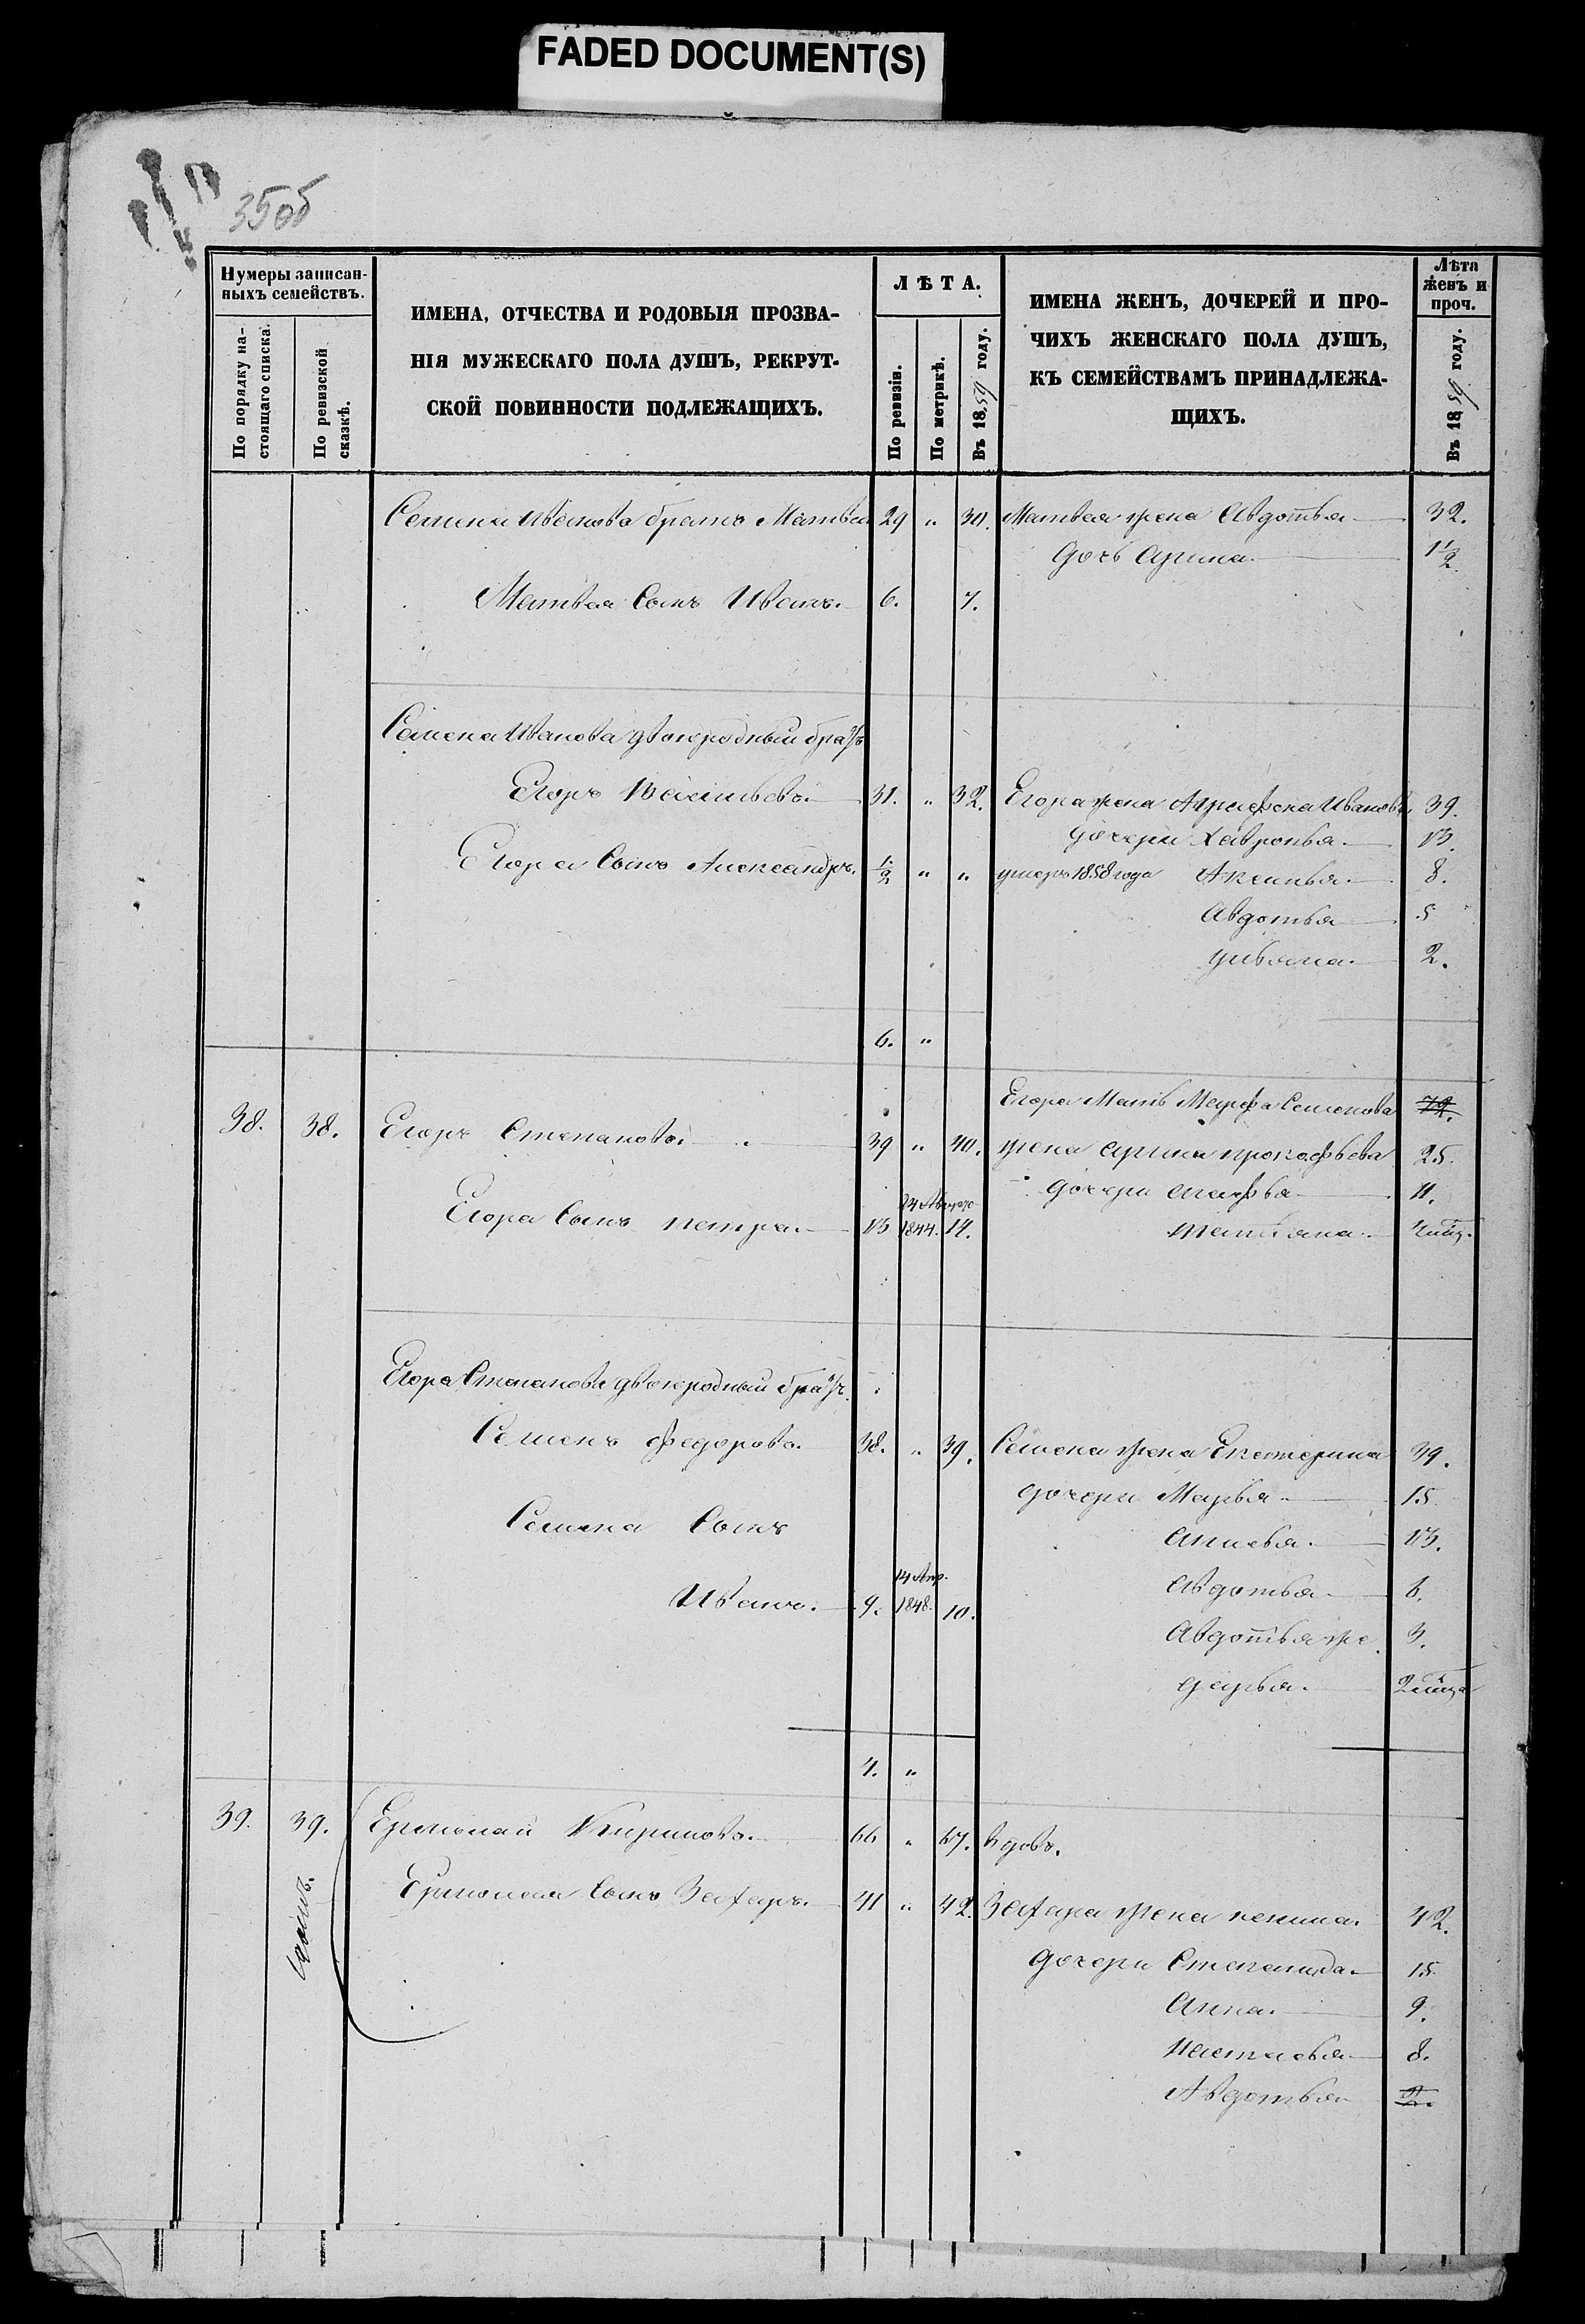 FADED DOCUMENT(S)
35об
Нумеры записан-
ныхъ семействъ.
По порядку на-
стоящаго списка.
По ревизской
сказкѣ.
ИМЕНА, ОТЧЕСТВА И РОДОВЫЯ ПРОЗВА-
НІЯ МУЖЕСКАГО ПОЛА ДУШЪ, РЕКРУТ-
СКОЙ ПОВИННОСТИ ПОДЛЕЖАЩИХЪ.
ЛѢТА.
По ревизіи.
По метрикѣ.
Въ 1859 году.
ИМЕНА ЖЕНЪ, ДОЧЕРЕЙ И ПРО-
ЧИХЪ ЖЕНСКАГО ПОЛА ДУШЪ,
КЪ СЕМЕЙСТВАМЪ ПРИНАДЛЕЖА-
ЩИХЪ.
Лѣта
женъ и
проч.
Въ 1859 году.
Семена Иванова братъ Матвей 29 " 30. Матвея жена Авдотья 32.
Дочь Арина 1 1/2.
Матвея Сынъ Иванъ. 6. 7.
Семена Иванова двоюродный братъ
Егоръ Васильевъ. 31. " 32. Егора жена Иванов. 39.
дочери Хавронья. 13.
Егора Сынъ Александръ. 1/2 " " умеръ 1858 года Аксинья. 8.
Авдотья 5
Ульяна. 2.
6. "
Егора Мать Марфа Семенова 72.
38. 38. Егоръ Степановъ. 39 " 40. жена Арина Прокофьева 25.
дочери 11.
24 Августа
Егора Сынъ Петра. 13 1844. 14. Татьяна.
Егора Степанова двоюродный братъ.
Семенъ Федоровъ. 38. " 39. Семена жена Екатерина 39.
дочери Марья. 15.
Семена Сынъ
Анисья. 13.
14 Апр.
Иванъ. 9. 1848. 10. Авдотья 6.
Авдотья же 3.
Дарья. 2
4. "
39. 39. Ермолай Кириловъ. 66 " 67. вдовъ.
Ермолая Сынъ Захаръ. 41 " 42. Захара жена 42.
дочери Степанида. 15.
Анна. 9.
Настасья 8.
Авдотья